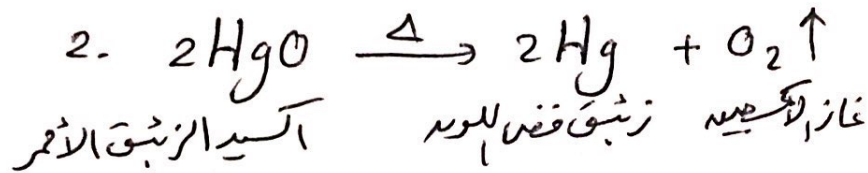 2. 2HgO —Δ→ 2Hg + O₂↑
اكسيد الزئبق الأحمر زئبق فضي اللون غاز الأكسجين